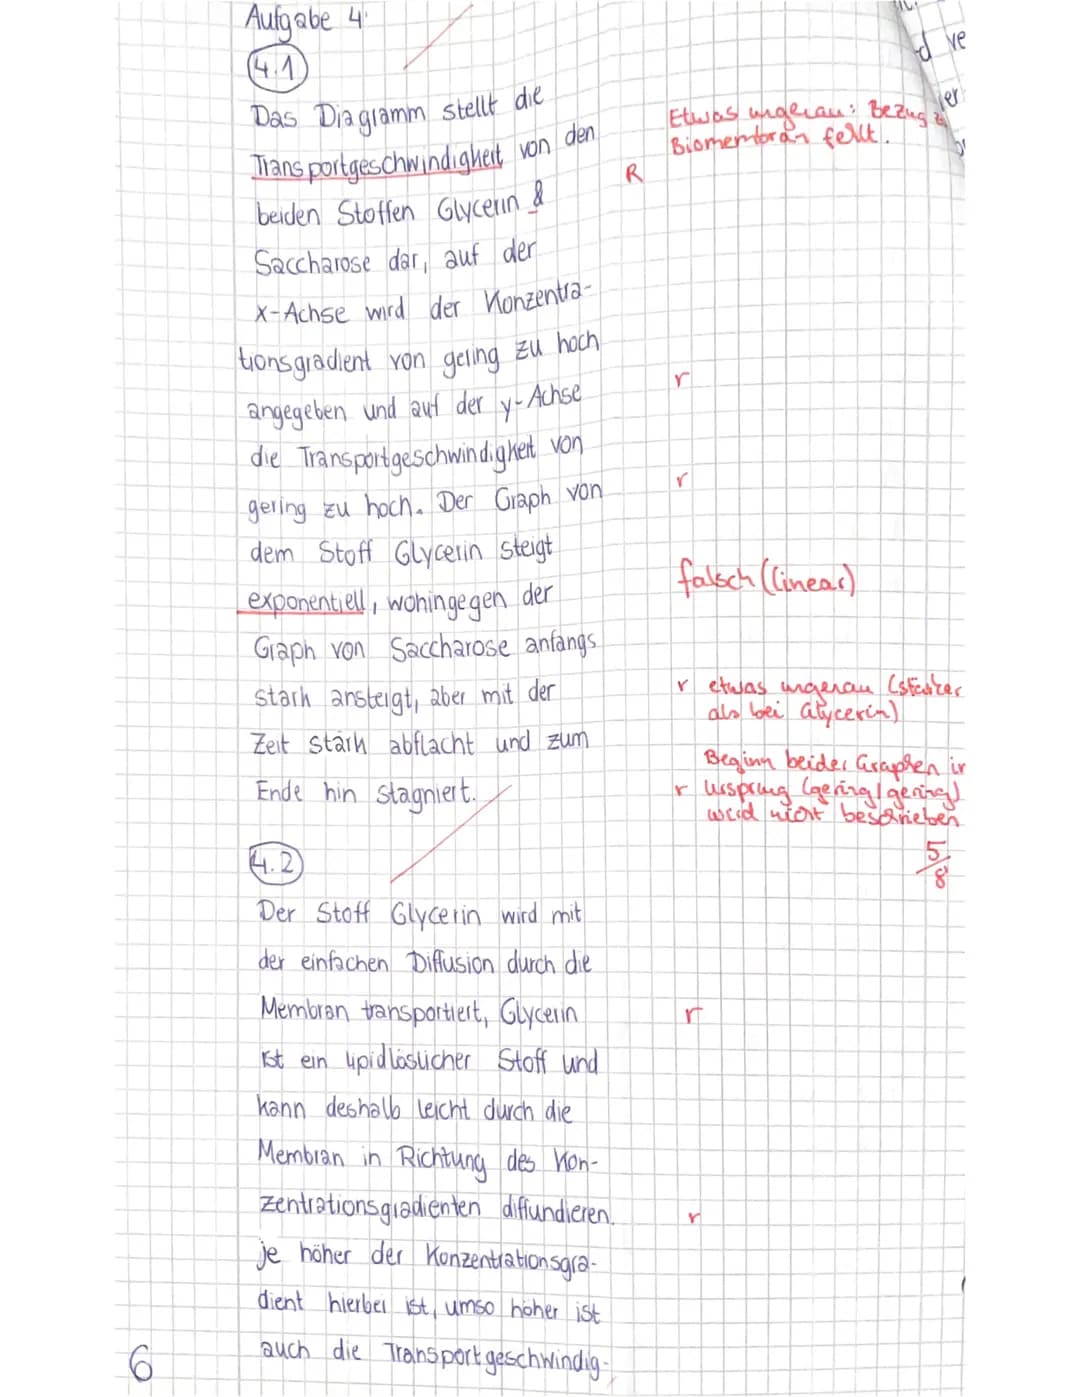 Aufgabe 4
4.1
Das Diagramm stellt die
Transportgeschwindigkeit von den
beiden Stoffen Glycerin &
Saccharose dar, auf der
x-Achse wird der Konzentra-
tionsgradient von gering zu hoch
angegeben und auf der y-Achse
die Transportgeschwindigkeit von
gering zu hoch. Der Graph von
dem Stoff Glycerin steigt
exponentiell, wohingegen der
Graph von Saccharose anfangs
stark ansteigt, aber mit der
Zeit stark abflacht und zum
Ende hin stagniert.
Etwas ungenau: Bezug z
Biomembran fehlt.
R
r
r
falsch (linear)
r etwas ungenau (stärker
als bei Glycerin)
Beginn beider Graphen im
r Ursprung (gering/gering)
wird nicht beschrieben
5/8
4.2
Der Stoff Glycerin wird mit
der einfachen Diffusion durch die
Membran transportiert, Glycerin
r
ist ein lipidlöslicher Stoff und
kann deshalb leicht durch die
Membran in Richtung des Kon-
zentrationsgradienten diffundieren.
r
je höher der Konzentrationsgra-
dient hierbei ist, umso höher ist
auch die Transportgeschwindig-
6
d ve